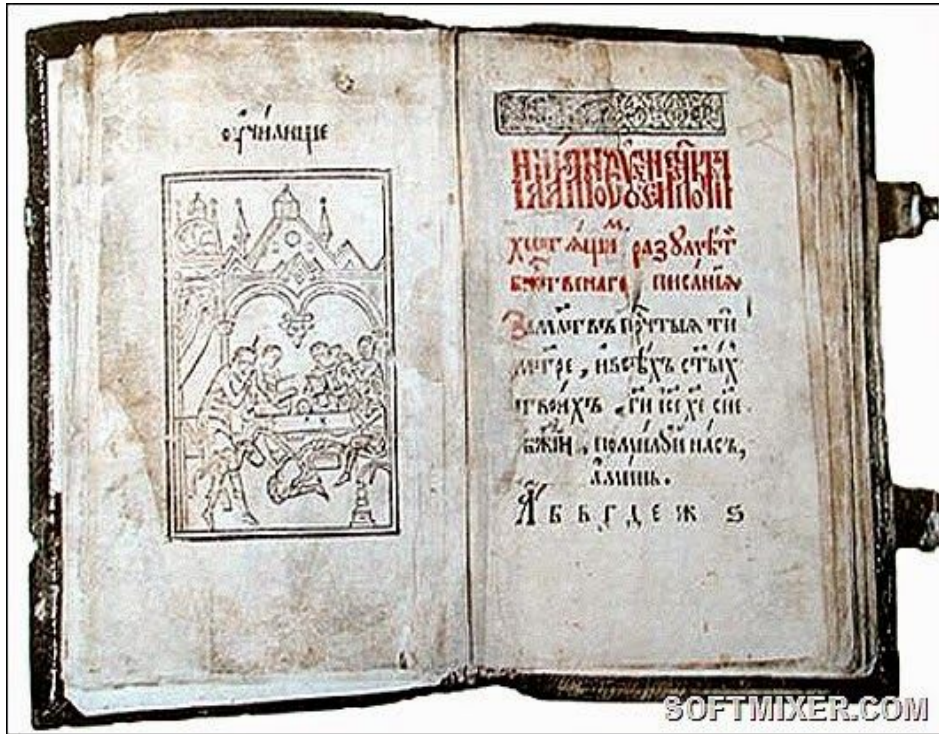 ѹ҆чи́лище
хотѧ́щимъ разꙋмѣ́ти
бжⷭ҇твенаго писа́нїѧ
За мл҃твъ прⷱ҇тыѧ ти
мт҃ре, и҆ всѣ́хъ ст҃ы́хъ
твои́хъ, гди і҆се хе сн҃е
бж҃їи, поми́лꙋй на́съ,
а҆ми́нь.
А҆ б в г д е ж ѕ
SOFTMIXER.COM